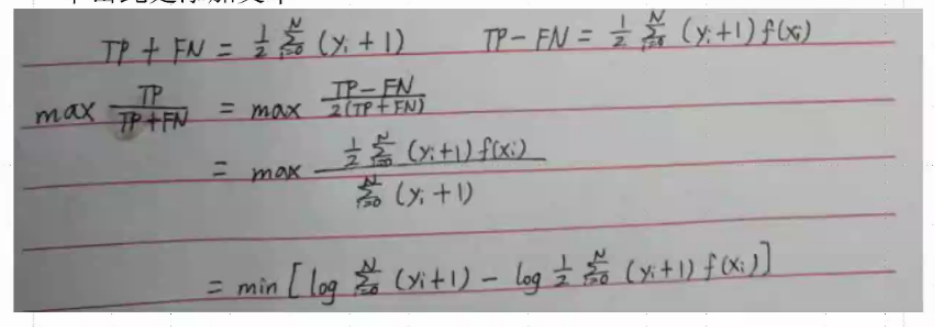 TP + FN = \frac{1}{2} \sum_{i=0}^{N} (y_i + 1)    TP - FN = \frac{1}{2} \sum_{i=0}^{N} (y_i + 1) f(x_i)
max \frac{TP}{TP+FN} = max \frac{TP-FN}{2(TP+FN)}
= max \frac{\frac{1}{2} \sum_{i=0}^{N} (y_i+1) f(x_i)}{\sum_{i=0}^{N} (y_i+1)}
= min [ log \sum_{i=0}^{N} (y_i+1) - log \frac{1}{2} \sum_{i=0}^{N} (y_i+1) f(x_i) ]